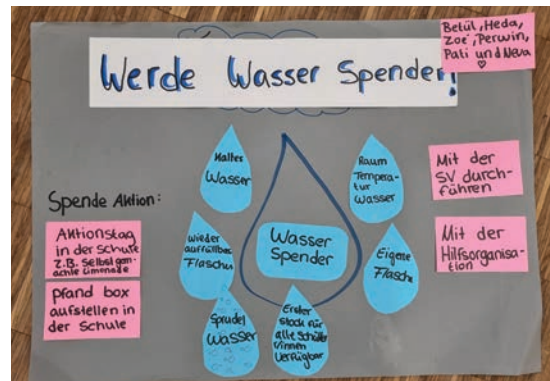 Werde Wasser Spender!
Betül, Heda,
Zoe, Perwin,
Pati und Neva
Kaltes
Wasser
Raum
Tempera-
tur
Wasser
Mit der
SV durch-
führen
Spende Aktion:
Aktionstag
in der Schule
z.B. Selbstgem-
achte Limonade
Pfand box
aufstellen in
der Schule
wieder
auffüllbar
Flaschen
Wasser
Spender
Eigene
Flasche
Mit der
Hilfsorganisa-
tion
Sprudel
Wasser
Erster
stock für
alle Schüler
innen
Verfügbar